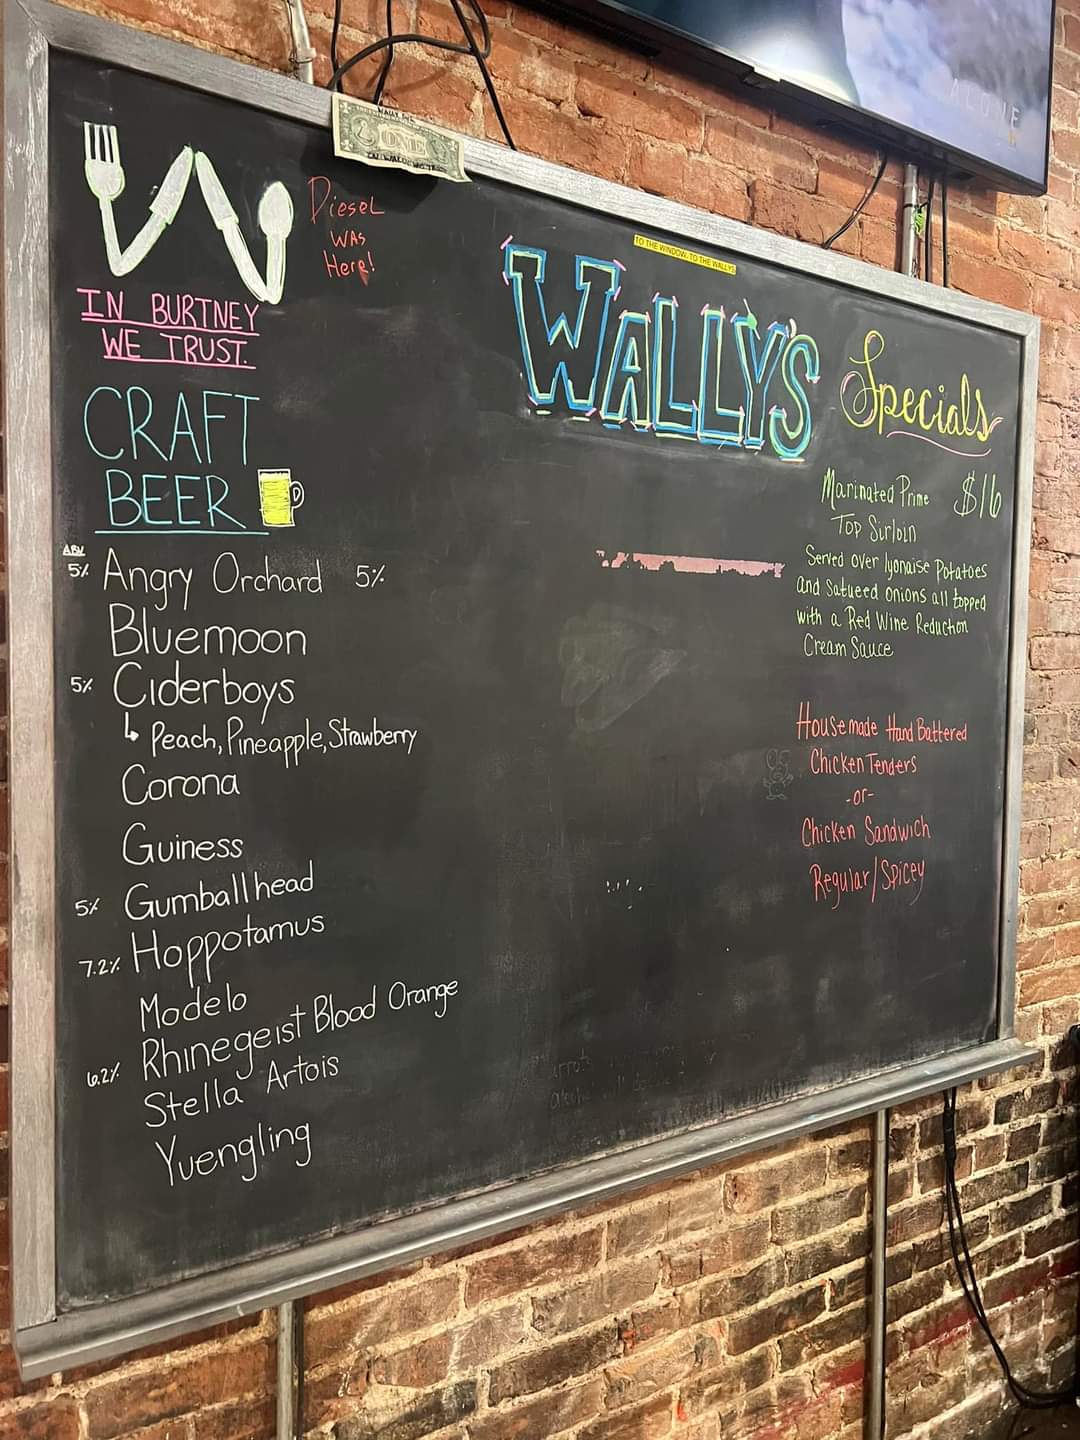 ALONE
ONE
TO THE WINDOW, TO THE WALLYS
Diesel
was
Here!
IN BURTNEY
WE TRUST.
CRAFT
BEER
ABV
5% Angry Orchard 5%
Bluemoon
5% Ciderboys
Peach, Pineapple, Strawberry
Corona
Guiness
5% Gumballhead
7.2% Hoppotamus
Modelo
6.2% Rhinegeist Blood Orange
Stella Artois
Yuengling
WALLY'S
Specials
Marinated Prime $16
Top Sirloin
Served over lyonaise Potatoes
and Satueed onions all topped
with a Red Wine Reduction
Cream Sauce
Housemade Hand Battered
Chicken Tenders
-or-
Chicken Sandwich
Regular/Spicey